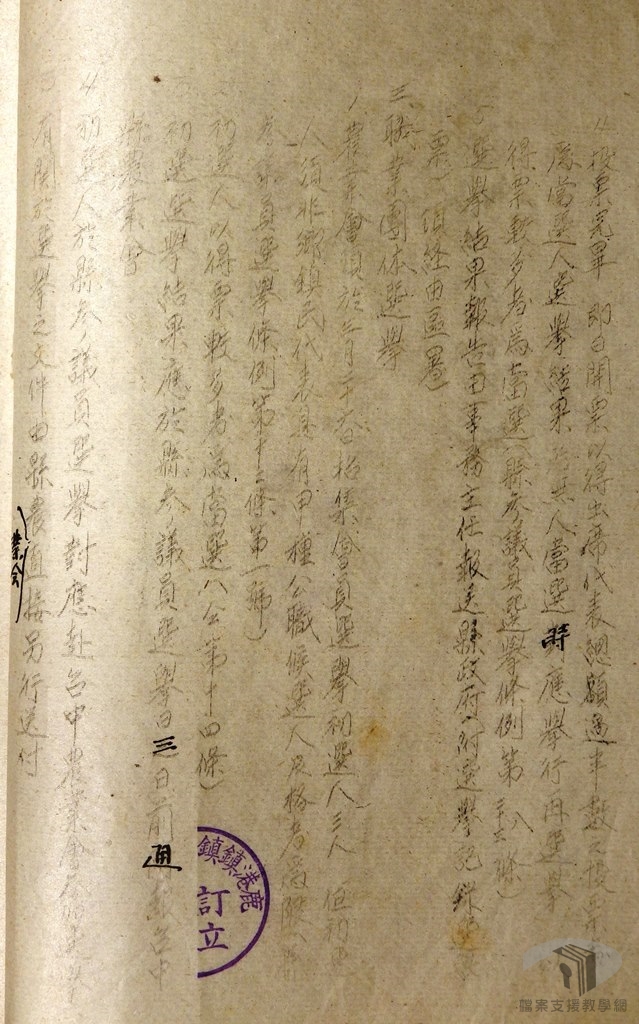 4投票完畢 即日開票以得出席代表總額過半數之投票
為當選人選舉結果 無人當選時應舉行再選舉
得票較多者為當選(縣參議員選舉條例第 條)
5選舉結果報告由事務主任報送縣政府(附選舉記錄
票)須經由區署
三、職業團体選舉
1農業會須於二月二十 召集會員選舉初選人三人 但初選
人須非鄉鎮民代表具有甲種公職候選人資格者為限
參議員選舉條例第十三條第一號)
初選人以得票較多者為當選(仝第十四條)
初選選舉結果應於縣參議員選舉日三日前通 台中
縣農業會
4初選人於縣參議員選舉時應赴台中農業會
有関於選舉之文件由縣農業会直接另行送付
鹿港鎮鎮
訂立
檔案支援教學網